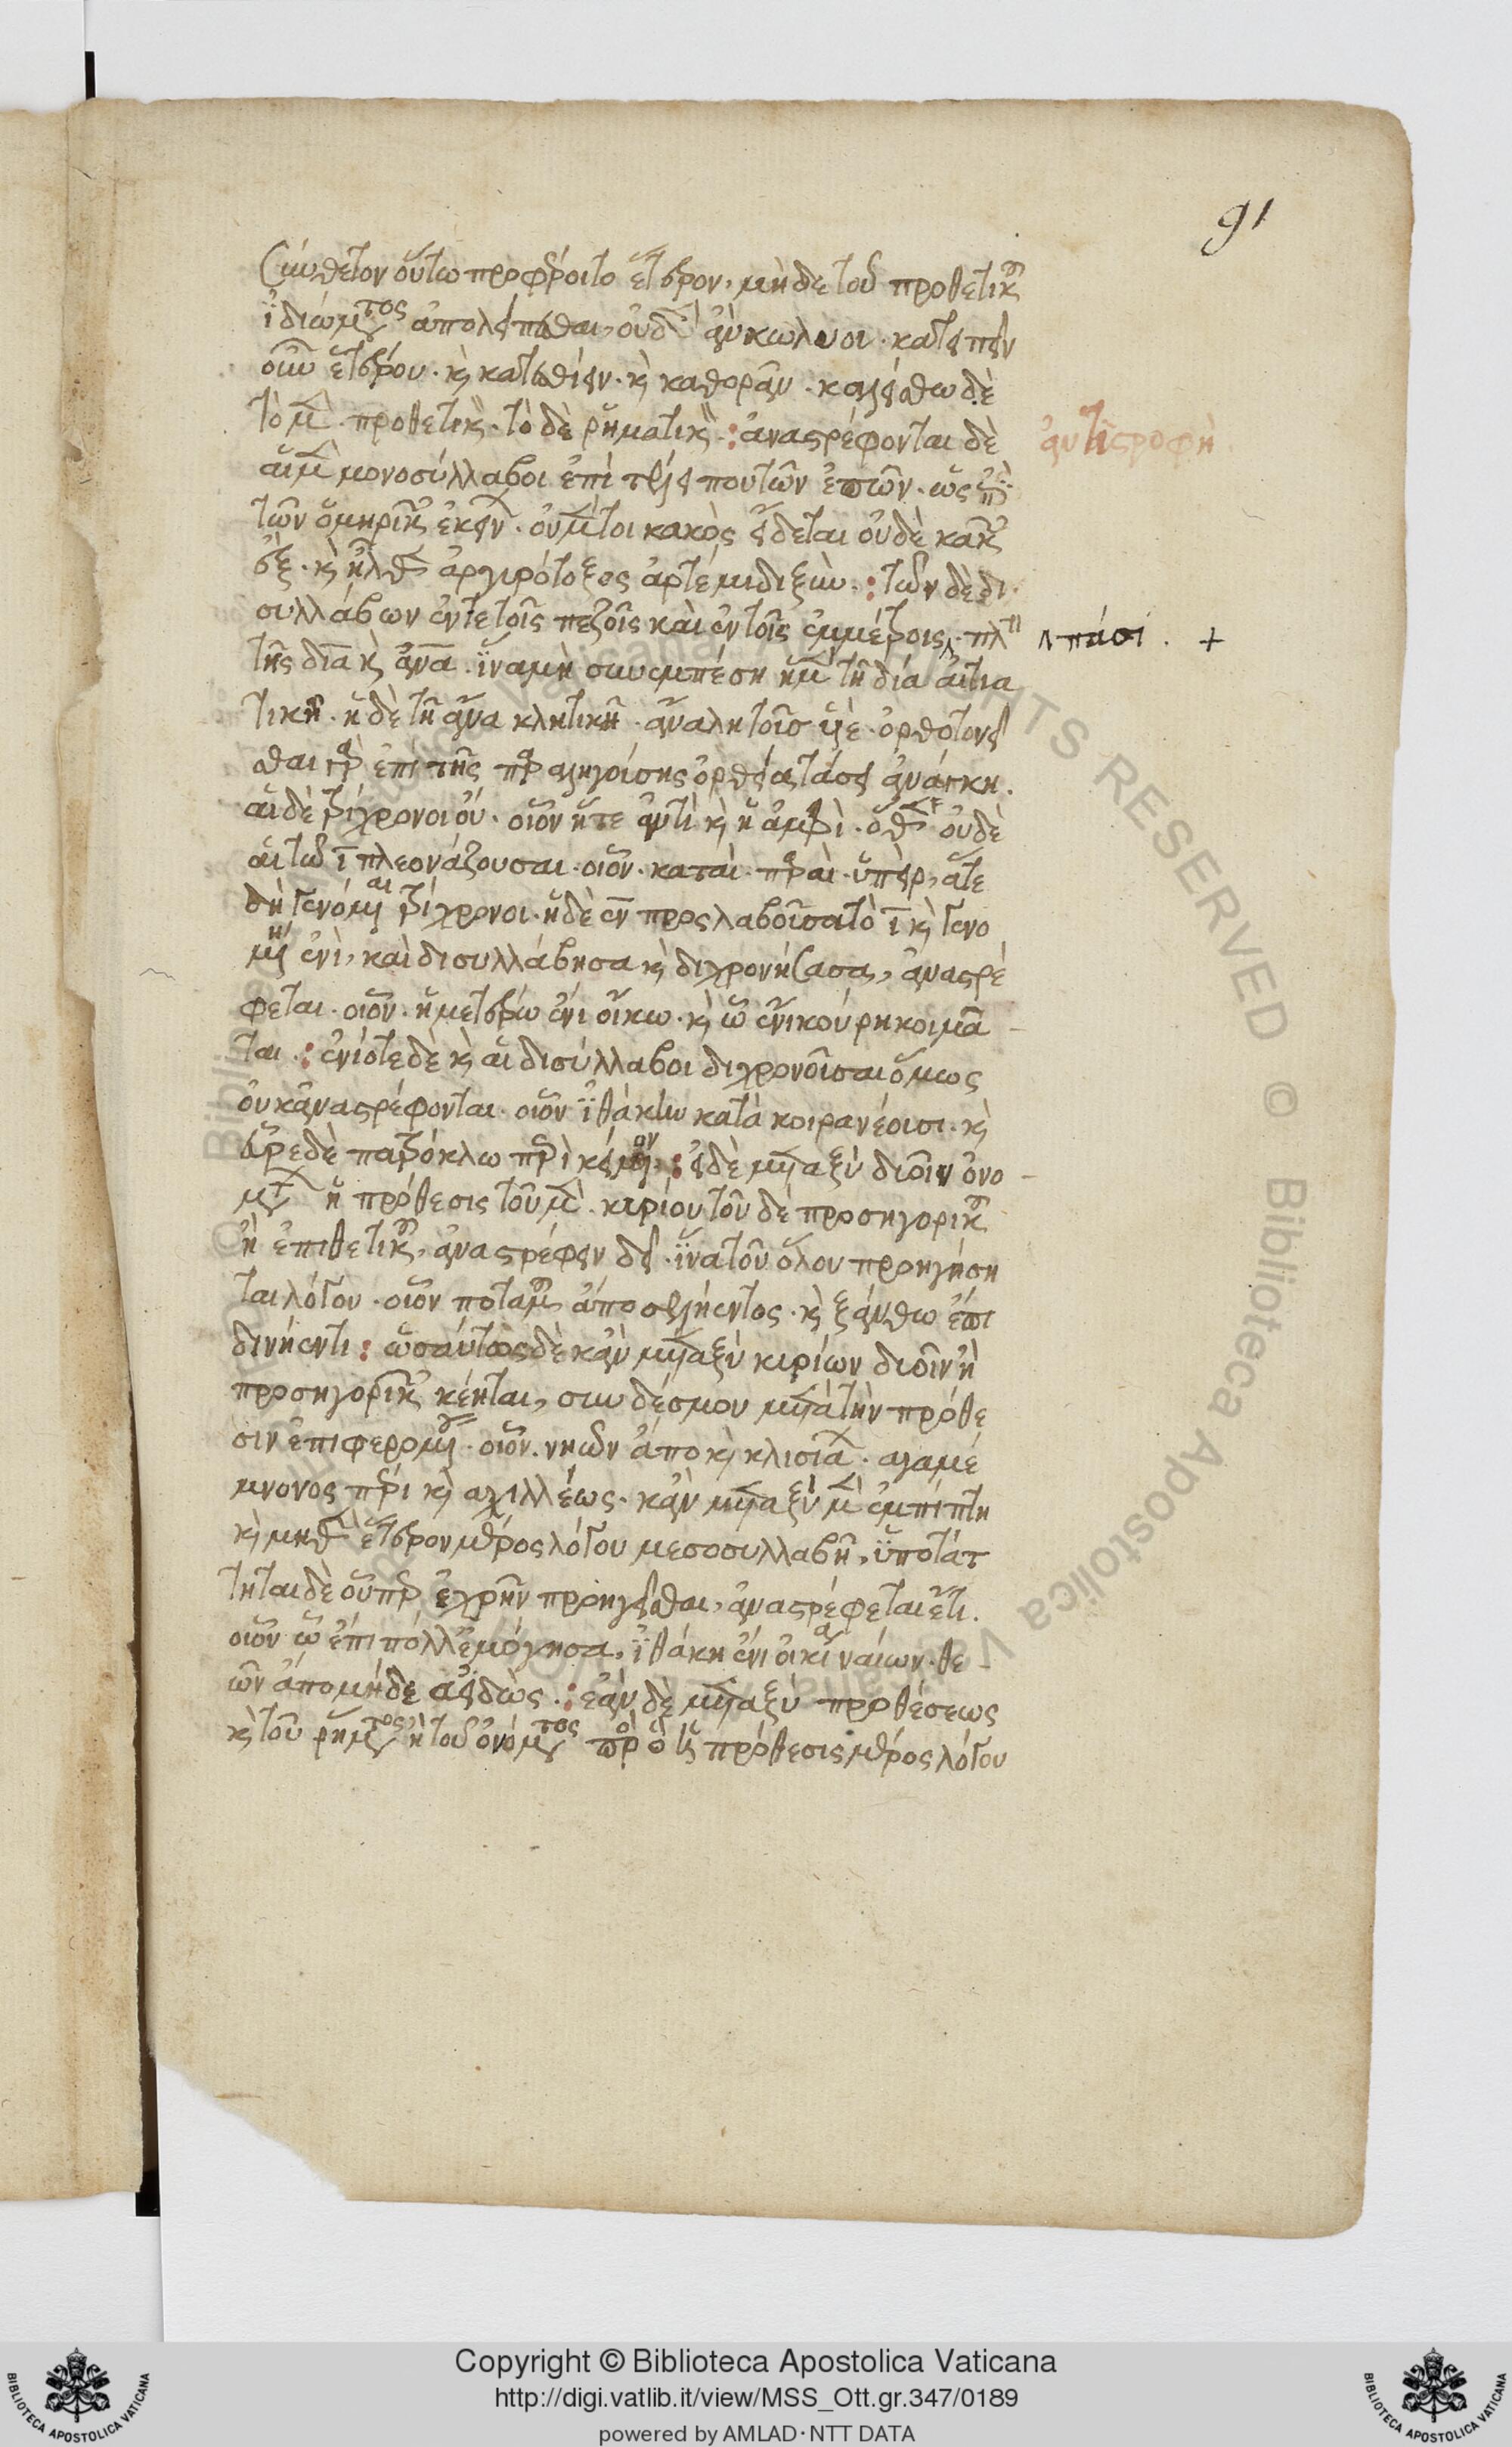 91
Σύνθετον οὕτω προφέροιτο ἕτερον, μηδὲ τοῦ προθετικοῦ
ἰδιώματος ἀπολείπεσθαι, οὐδὲν ἂν κωλύοι. κατειπεῖν
οὖν ἑτέρου. καὶ κατεσθίειν. καὶ καθορᾶν. καλείσθω δὲ
τὸ μὲν προθετικὸν. τὸ δὲ ῥηματικόν: ἀναστρέφονται δὲ
αἱ μὲν μονοσύλλαβοι ἐπὶ
τῶν ὁμηρικῶν ἐκείνων. οὐ μέν τοι κακὸς εἴδεται οὐδὲ κακῶν
ἐξ. καὶ ἦλθεν ἀργυρότοξος ἀρτέμιδι ξύν: τῶν δὲ δι
συλλάβων ἔν τε τοῖς πεζοῖς καὶ ἐν τοῖς ἐμμέτροις. πλὴν
τῆς διὰ καὶ ἀνά. ἵνα μὴ συνεμπέσῃ ἡ μὲν τῇ δία αἰτια
τικῇ. ἡ δὲ τῇ ἄνα κλητικῇ.
σθαι γὰρ ἐπὶ τῆς παραληγούσης ὀρθῇ τάσει ἀνάγκη.
αἱ δὲ τρίχρονοι οὔ. οἷον ἥ τε ἀντὶ καὶ ἡ ἀμφὶ. ὅθεν οὐδὲ
αἱ τῷ ι πλεονάζουσαι. οἷον. καταὶ. παραὶ. ὑπείρ, ἅτε
δὴ γενόμεναι τρίχρονοι. ἡ δὲ ἐν προσλαβοῦσα τὸ ι καὶ γενο
μένη ἐνὶ, καὶ δισυλλαβήσασα καὶ διχρονήσασα, ἀναστρέ
φεται. οἷον. ἡμετέρῳ ἐνὶ οἴκῳ. καὶ ᾧ ἔνι κούρη κοιμᾶ
ται: ἐνίοτε δὲ καὶ αἱ δισύλλαβοι διχρονοῦσαι ὅμως
οὐκ ἀναστρέφονται. οἷον ἰθάκην κατὰ κοιρανέουσι. καὶ
εὗρε δὲ πατρόκλῳ περὶ κείμενον: εἰ δὲ μεταξὺ δυοῖν ὀνο
μάτων ἡ πρόθεσις τοῦ μὲν κυρίου τοῦ δὲ προσηγορικοῦ
ἢ ἐπιθετικοῦ, ἀναστρέφειν δεῖ. ἵνα τοῦ ὅλου προηγήση
ται λόγου. οἷον ποταμοῦ ἄπο σελλήεντος. καὶ ξάνθῳ ἔπι
δινήεντι: ὡσαύτως δὲ κἂν μεταξὺ κυρίων δυοῖν ἢ
προσηγορικῶν κέηται, συνδέσμου μετὰ τὴν πρόθε
σιν ἐπιφερομένου. οἷον. νηῶν ἄπο καὶ κλισιάων. αγαμέ
μνονος πέρι καὶ αχιλλέως. κἂν μεταξὺ μὲν ἐμπίπτῃ
καὶ μηθὲν ἕτερον μέρος λόγου μεσοσυλλαβῇ, ὑποτάτ
τηται δὲ οὗπερ ἐχρῆν προηγεῖσθαι, ἀναστρέφεται ἔτι.
οἷον ᾧ ἔπι πόλλ᾽ ἐμόγησα, ἰθάκῃ ἔνι οἰκία ναίων. θε
ῶν ἄπο μήδεα εἰδώς: ἐὰν δὲ μεταξὺ προθέσεως
καὶ τοῦ ῥήματος ἢ τοῦ ὀνόματος πρὸς ὃ ἡ πρόθεσις μέρος λόγου
ἀντιστροφὴ
πᾶσι. +
Copyright © Biblioteca Apostolica Vaticana
http://digi.vatlib.it/view/MSS_Ott.gr.347/0189
powered by AMLAD·NTT DATA
BIBLIOTECA APOSTOLICA VATICANA
BIBLIOTECA APOSTOLICA VATICANA